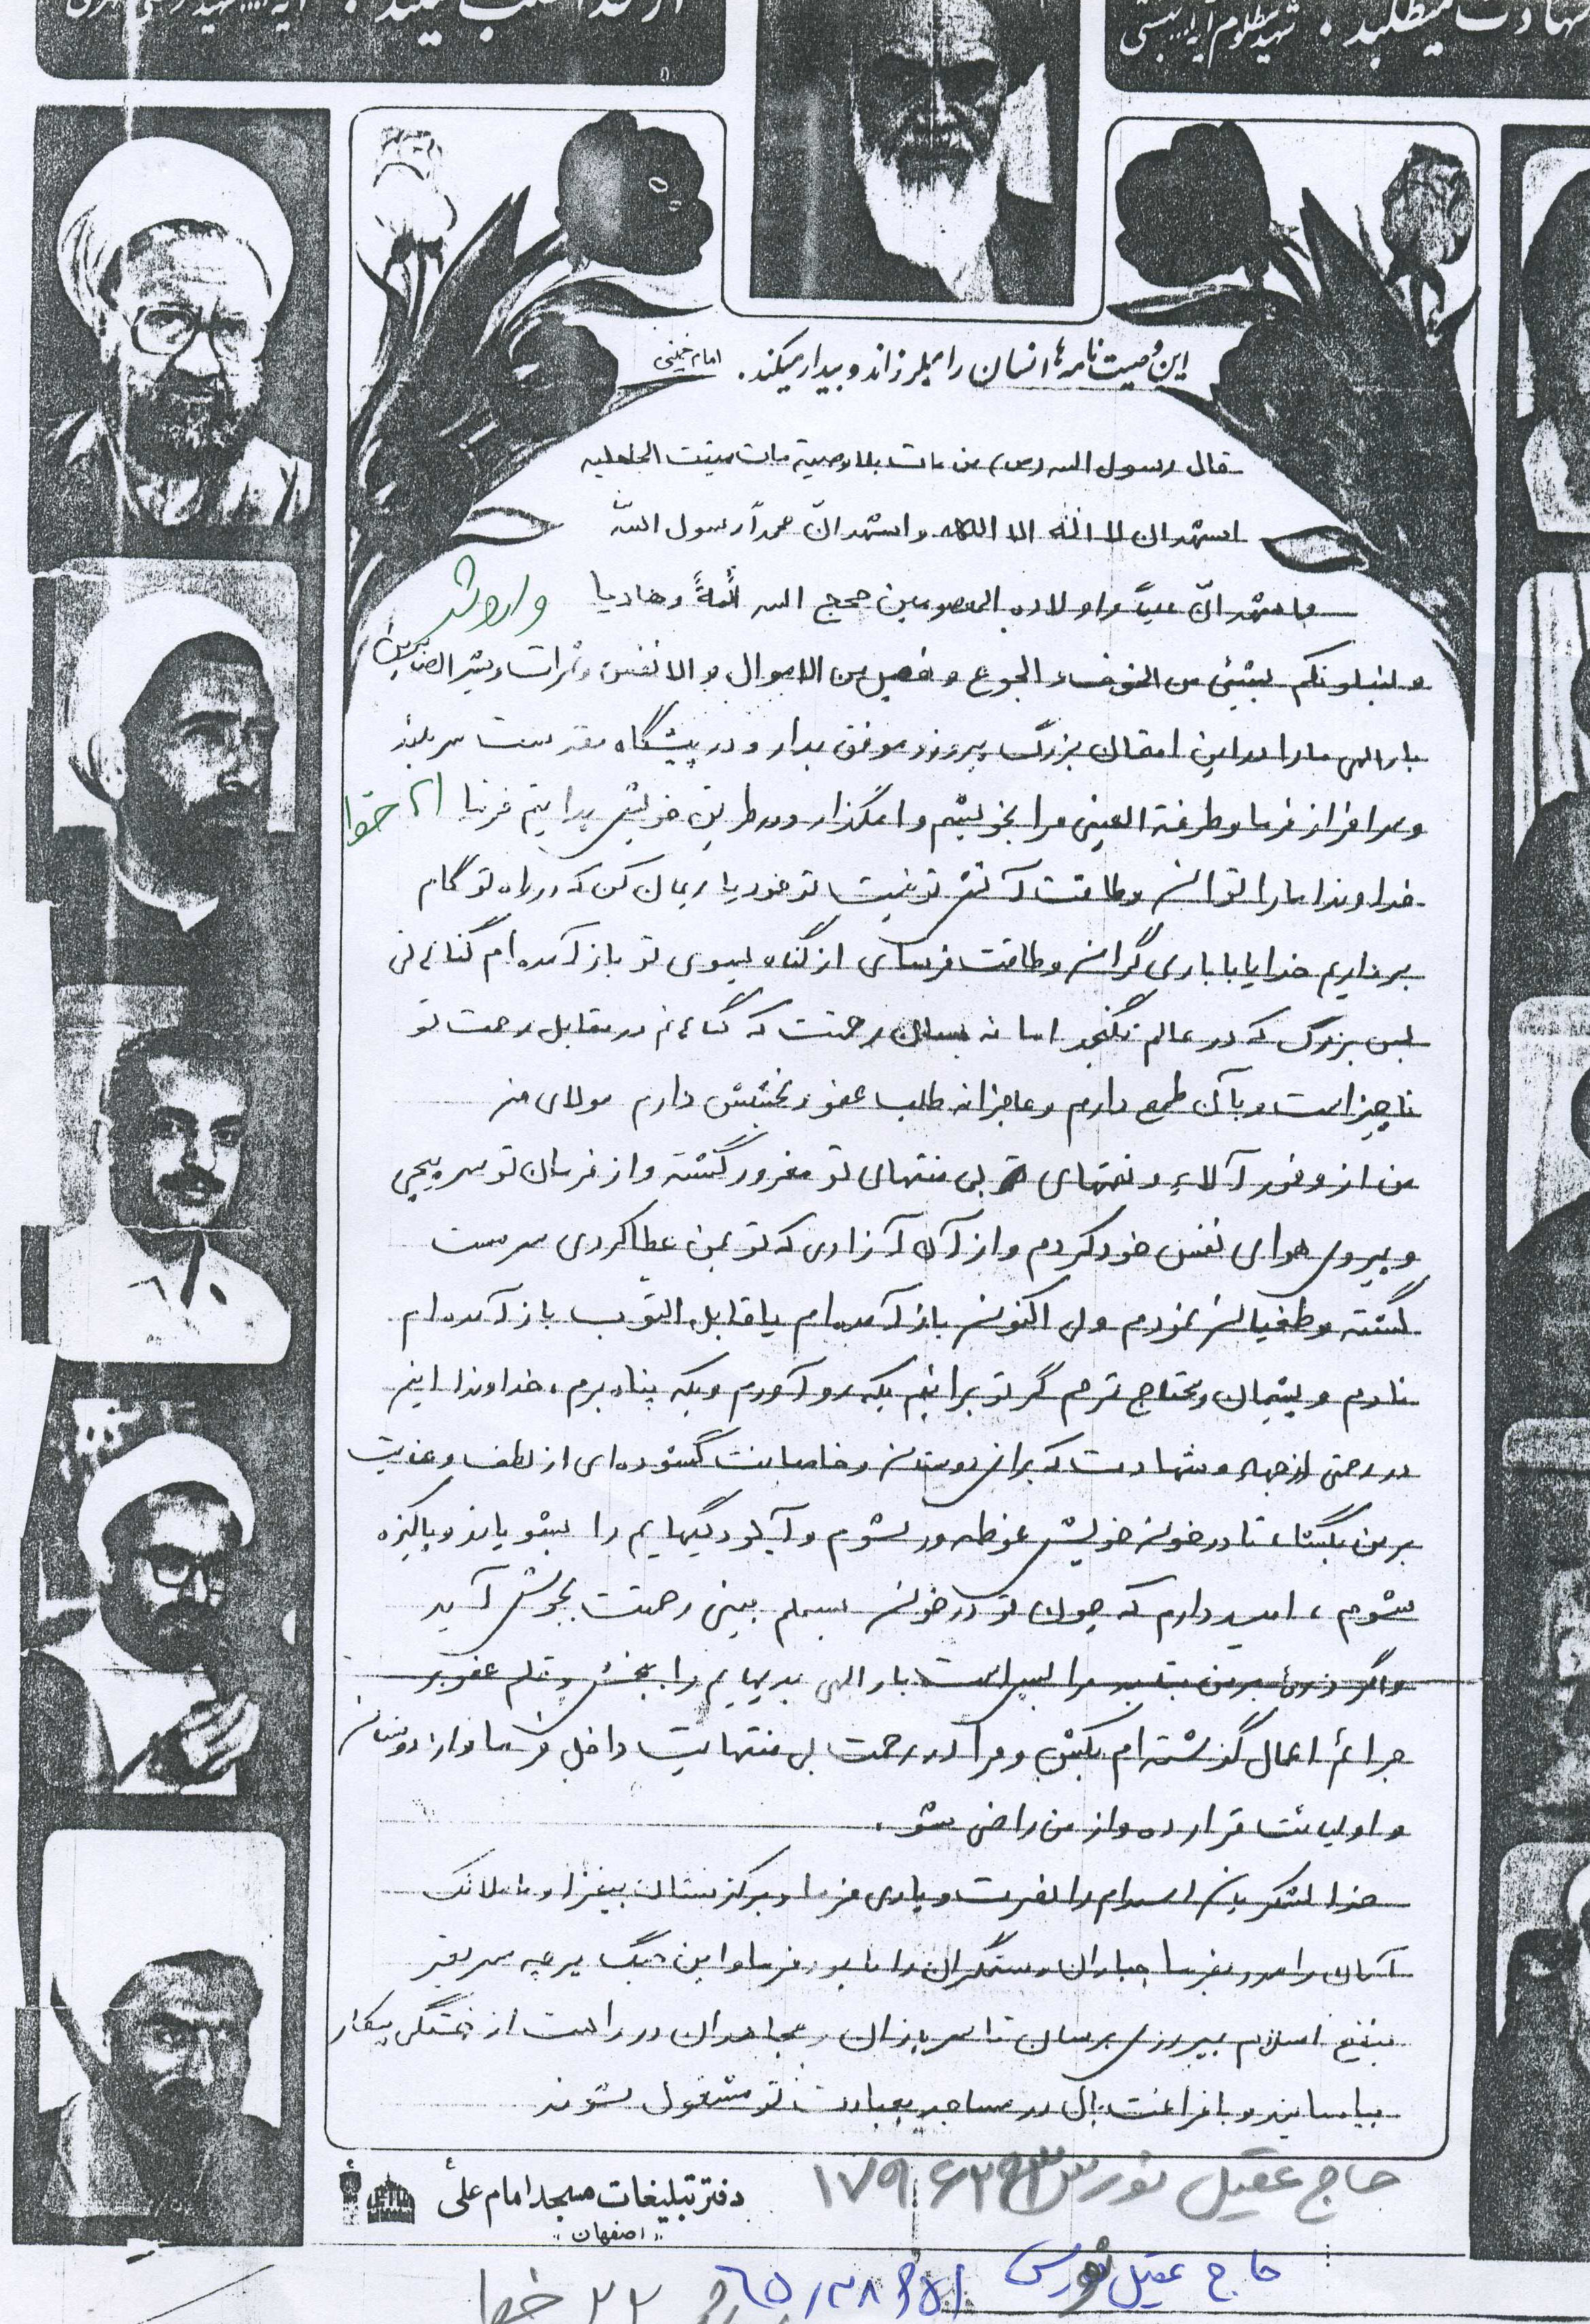 شهادت میطلبد. شهید مظلوم آیة... بهشتی
این وصیت نامه‌ها انسان را میلرزاند و بیدار میکند. امام خمینی
قال رسول الله (ص) من مات بلا وصیة مات میتت الجاهلیه
اشهد ان لا اله الا الله و اشهد انّ محمداً رسول الله
و اشهد انّ علیاً و اولاده المعصومین حجج الله ائمةً و هادیا
وارد شد
و لنبلونکم بشیئی من الخوف و الجوع و نقص من الاموال و الانفس و ثمرات و بشر الصابرین
بار الهی ما را در این امتحان بزرگ پیروز و موفق بدار و در پیشگاه مقدست سربلند
و سرافراز فرما و طرفة العینی مرا بخویشم وامگذار و در طریق خویش هدایتم فرما
۲۱ خط
خداوندا ما را توان و طاقت آتش تو نیست تو خود یاریمان کن که در راه تو گام
برداریم خدایا با باری گران و طاقت فرسای از گناه بسوی تو باز آمده‌ام گناهانی
بس بزرگ که در عالم نگنجد اما نه بسان رحمتت که گناهانم در مقابل رحمت تو
ناچیز است و بآن طمع دارم و عاجزانه طلب عفو و بخشش دارم مولای من
من از وفور آلاء و نعمتهای بی منتهای تو مغرور گشته و از فرمان تو سرپیچی
و پیروی هوای نفس خود کردم و از آن آزادی که تو بمن عطا کردی سرمست
گشته و طغیان نمودم ولی اکنون باز آمده‌ام یا قابل التوب باز آمده‌ام
نادم و پشیمان و محتاج ترحم گر تو برانیم بکه رو آورم و بکه پناه برم، خداوندا این
در رحمتی از جهاد و شهادت که برای دوستان و خاصانت گشوده‌ای از لطف و عنایت
بر من بگشا، تا در خون خویش غوطه‌ور شوم و آلودگیهایم را بشویاند و پاکیزه
شوم، امید دارم که چون تو در خون بسملم بینی رحمتت بجوش آید
و اگر ذره‌ای بر من بتابد مرا بس است بار الهی بدیهایم را ببخش و قلم عفو بر
جرائم اعمال گذشته‌ام بکش و مرا در رحمت بی منتهایت داخل فرما و از دوستان
و اولیائت قرار ده و از من راضی شو.
خدا لشکریان اسلام را نصرت و یاری فرما و برکزتشان بیفزا و با ملائک
آسمان را مدد بفرما جباران و ستمگران را نابود فرما و این جنگ هر چه سریعتر
بنفع اسلام بپیروزی برسان تا سربازان و مجاهدان در راهت از خستگی پیکار
بیاسایند و با فراغت بال در مساجد بعبادت تو مشغول شوند
حاج عقیل نورس
دفتر تبلیغات مسجد امام علی
«اصفهان»
حاج عقیل نورس
۲۲ خط